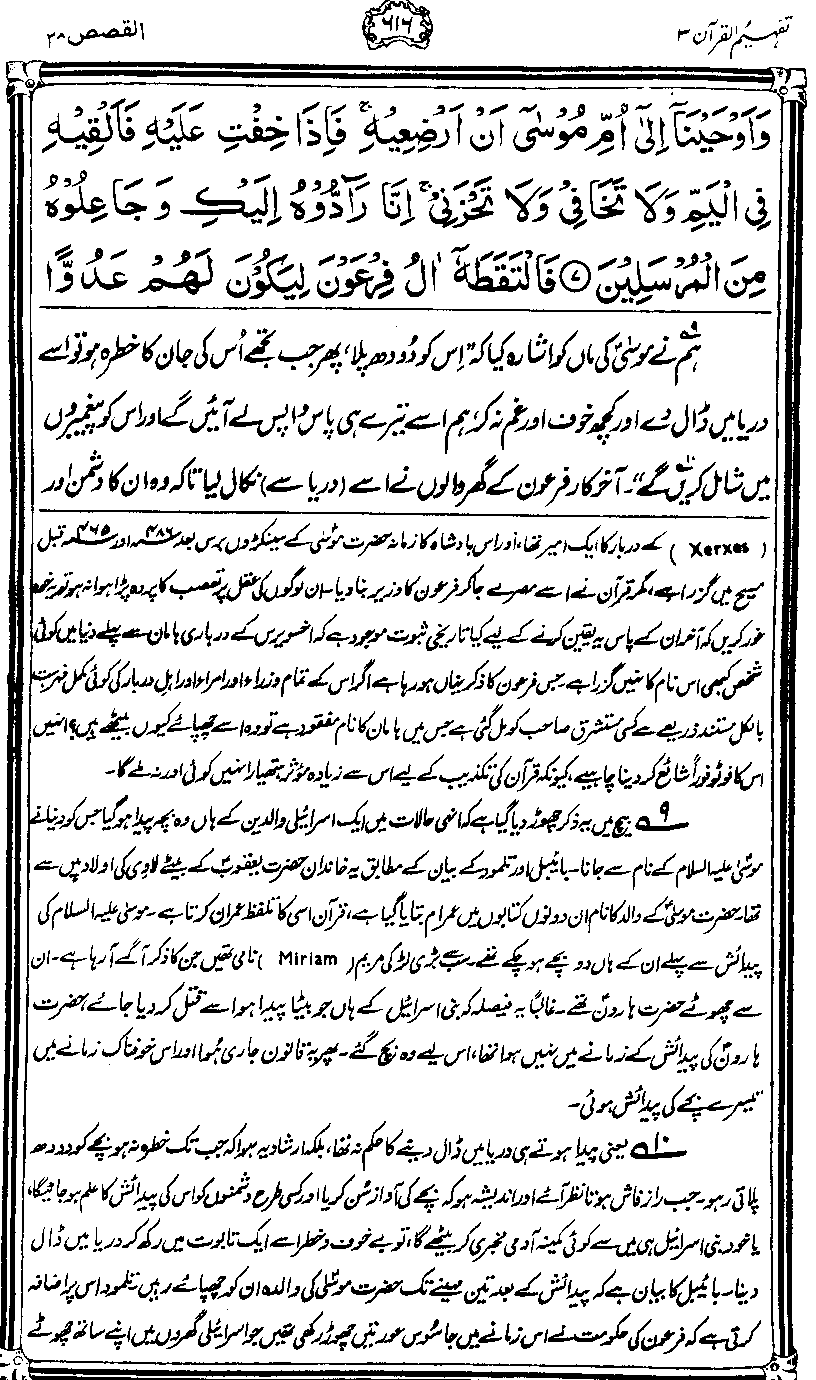 تفہیم القرآن ۳
۶۱۶
القصص ۲۸
وَاَوْحَيْنَآ اِلٰٓى اُمِّ مُوْسٰٓى اَنْ اَرْضِعِيْهِ ۚ فَاِذَا خِفْتِ عَلَيْهِ فَاَلْقِيْهِ
فِى الْيَمِّ وَلَا تَخَافِىْ وَلَا تَحْزَنِىْ ۚ اِنَّا رَآدُّوْهُ اِلَيْكِ وَجَاعِلُوْهُ
مِنَ الْمُرْسَلِيْنَ ﴿۷﴾ فَالْتَقَطَهٗٓ اٰلُ فِرْعَوْنَ لِيَكُوْنَ لَهُمْ عَدُوًّا
ہم نے موسیٰؑ کی ماں کو اشارہ کیا کہ "اِس کو دودھ پلا، پھر جب تجھے اُس کی جان کا خطرہ ہو تو اسے
دریا میں ڈال دے اور کچھ خوف اور غم نہ کر، ہم اسے تیرے ہی پاس واپس لے آئیں گے اور اس کو پیغمبروں
میں شامل کریں گے"۔ آخرکار فرعون کے گھر والوں نے اسے (دریا سے) نکال لیا تاکہ وہ ان کا دشمن اور
(Xerxes) کے دربار کا ایک امیر تھا، اور اس بادشاہ کا زمانہ حضرت موسٰی کے سینکڑوں برس بعد ۴۸۶؁ اور ۴۶۵؁ قبل
مسیح میں گزرا ہے، مگر قرآن نے اسے مصر لے جا کر فرعون کا وزیر بنا دیا۔ ان لوگوں کی عقل پر تعصب کا پردہ پڑا ہوا نہ ہو تو یہ خود
غور کریں کہ آخر ان کے پاس یہ یقین کرنے کے لیے کیا تاریخی ثبوت موجود ہے کہ اخسویرس کے درباری ہامان سے پہلے دنیا میں کوئی
شخص کبھی اس نام کا نہیں گزرا ہے۔ جس فرعون کا ذکر یہاں ہو رہا ہے اگر اس کے تمام وزراء اور امراء اور اہل دربار کی کوئی مکمل فہرست
بالکل مستند ذریعے سے کسی مستشرق صاحب کو مل گئی ہے جس میں ہامان کا نام مفقود ہے تو وہ اسے چھپائے کیوں بیٹھے ہیں؟ انہیں
اس کا فوٹو فوراً شائع کر دینا چاہیے، کیونکہ قرآن کی تکذیب کے لیے اس سے زیادہ مؤثر ہتھیار انہیں کوئی اور نہ ملے گا۔
۹؎ بیچ میں یہ ذکر چھوڑ دیا گیا ہے کہ انہی حالات میں ایک اسرائیلی والدین کے ہاں وہ بچہ پیدا ہو گیا جس کو دنیا نے
موسٰی علیہ السلام کے نام سے جانا۔ بائیبل اور تلمود کے بیان کے مطابق یہ خاندان حضرت یعقوبؑ کے بیٹے لاوِی کی اولاد میں سے
تھا۔ حضرت موسٰیؑ کے والد کا نام ان دونوں کتابوں میں عمرام بتایا گیا ہے، قرآن اسی کا تلفظ عمران کرتا ہے۔ موسٰی علیہ السلام کی
پیدائش سے پہلے ان کے ہاں دو بچے ہو چکے تھے۔ سب سے بڑی لڑکی مریم (Miriam) نامی تھیں جن کا ذکر آگے آ رہا ہے۔ ان
سے چھوٹے حضرت ہارونؑ تھے۔ غالباً یہ فیصلہ کہ بنی اسرائیل کے ہاں جو بیٹا پیدا ہو اسے قتل کر دیا جائے، حضرت
ہارونؑ کی پیدائش کے زمانے میں نہیں ہوا تھا، اس لیے وہ بچ گئے۔ پھر یہ قانون جاری ہُوا اور اس خوفناک زمانے میں
تیسرے بچے کی پیدائش ہوئی۔
۱۰؎ یعنی پیدا ہوتے ہی دریا میں ڈال دینے کا حکم نہ تھا، بلکہ ارشاد یہ ہوا کہ جب تک خطرہ نہ ہو بچے کو دودھ
پلاتی رہو۔ جب راز فاش ہوتا نظر آئے اور اندیشہ ہو کہ بچے کی آواز سُن کر یا اور کسی طرح دشمنوں کو اس کی پیدائش کا علم ہو جائیگا،
یا خود بنی اسرائیل ہی میں سے کوئی کمینہ آدمی مخبری کر بیٹھے گا، تو بے خوف و خطر اسے ایک تابوت میں رکھ کر دریا میں ڈال
دینا۔ بائیبل کا بیان ہے کہ پیدائش کے بعد تین مہینے تک حضرت موسٰی کی والدہ ان کو چھپائے رہیں۔ تلمود اس پر اضافہ
کرتی ہے کہ فرعون کی حکومت نے اس زمانے میں جاسوس عورتیں چھوڑ رکھی تھیں جو اسرائیلی گھروں میں اپنے ساتھ چھوٹے